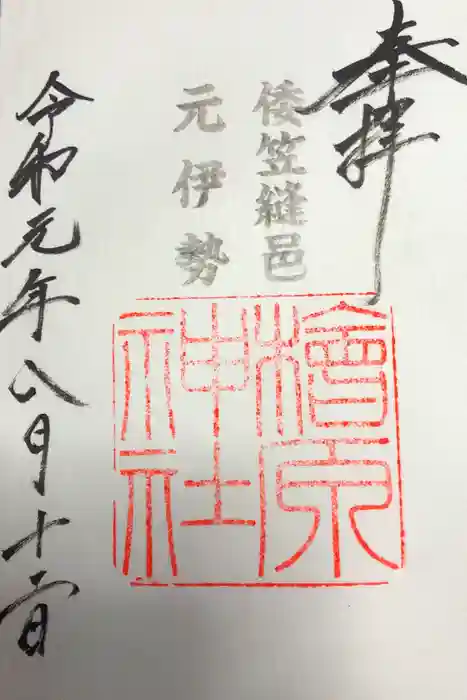 奉拝
倭笠縫邑
元伊勢
檜原
神社
令和元年八月十二日